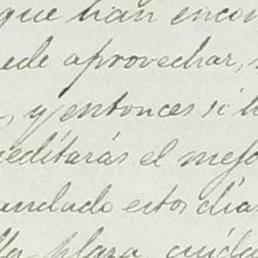 que han encon
ede aprovechar,
, y entonces si h
editarás el mejo
andado estos días
plaza, cuida